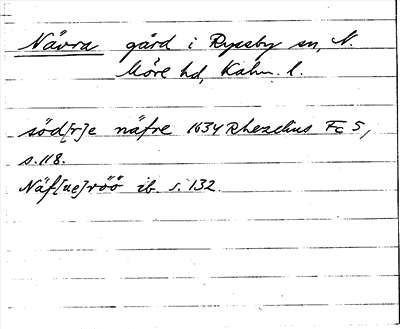 Nävra gård i Ryssby sn, N.
Möre hd, Kalm. l.
söd[r]e näfre 1634 Rhezelius Fc 5,
s. 118.
Näf[ve]röö ib. s. 132.